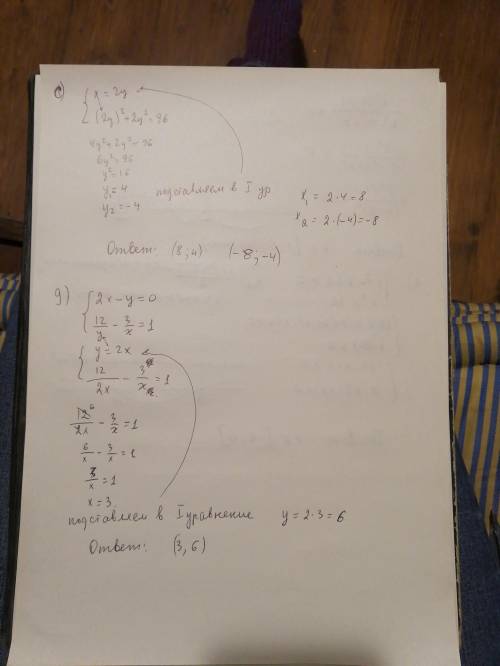 c) { x = 2y
(2y)² + 2y² = 96
4y² + 2y² = 96
6y² = 96
y² = 16
y₁ = 4 подставляем в I ур x₁ = 2·4 = 8
y₂ = -4 x₂ = 2·(-4) = -8
Ответ: (8; 4) (-8; -4)
g) { 2x - y = 0
12/y - 3/x = 1
{ y = 2x
12/2x - 3/x = 1
12⁶/2x - 3/x = 1
6/x - 3/x = 1
3/x = 1
x = 3
подставляем в I уравнение y = 2·3 = 6
Ответ: (3, 6)